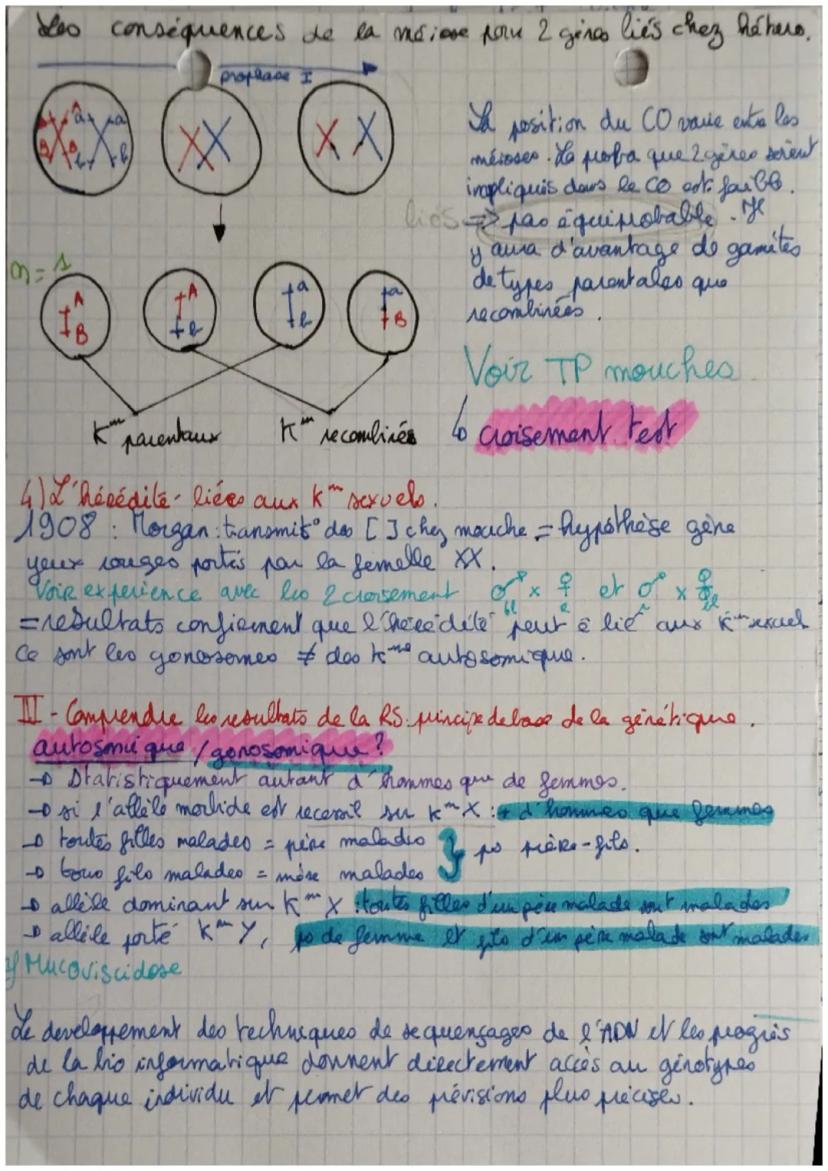 Les conséquences de la méiose pour 2 gènes liés chez hétéro.
prophase I
A a a
B B b b
La position du CO varie entre les
méioses. La proba que 2 gènes soient
impliqués dans le CO est faible.
liés => pas équiprobable. Il
y aura d'avantage de gamètes
de types parentales que
recombinées.
n = 1
A A a a
B b b B
Voir TP mouches
Kᵐ parentaux Kᵐ recombinés ↳ croisement test
4) L'hérédité liées aux Kᵐ sexuels.
1908 : Morgan : transmit° des [ ] chez mouche = hypothèse gène
yeux rouges portés par la femelle XX.
Voir experience avec les 2 croisement ♂ x ♀ et ♂ x ♀
= résultats confirment que l'hérédité peut ê lié aux Kᵐ sexuel
Ce sont les gonosomes ≠ des Kᵐᵉˢ autosomique.
III - Comprendre les resultats de la RS: principe de base de la génétique.
autosomique / gonosomique ?
→ Statistiquement autant d'hommes que de femmes.
→ si l'allèle morbide est recessif sur Kᵐ X : + d'hommes que femmes
→ toutes filles malades = père malades
} ps père-fils.
→ tous fils malades = mère malades
→ allèle dominant sur Kᵐ X : toutes filles d'un père malade sont malades
→ allèle porté Kᵐ Y, ps de femme et fils d'un père malade sont malades
Mucoviscidose
Le developpement des techniques de sequençages de l'ADN et les progrès
de la bio informatique donnent directement accès au génotypes
de chaque individu et permet des prévisions plus précises.